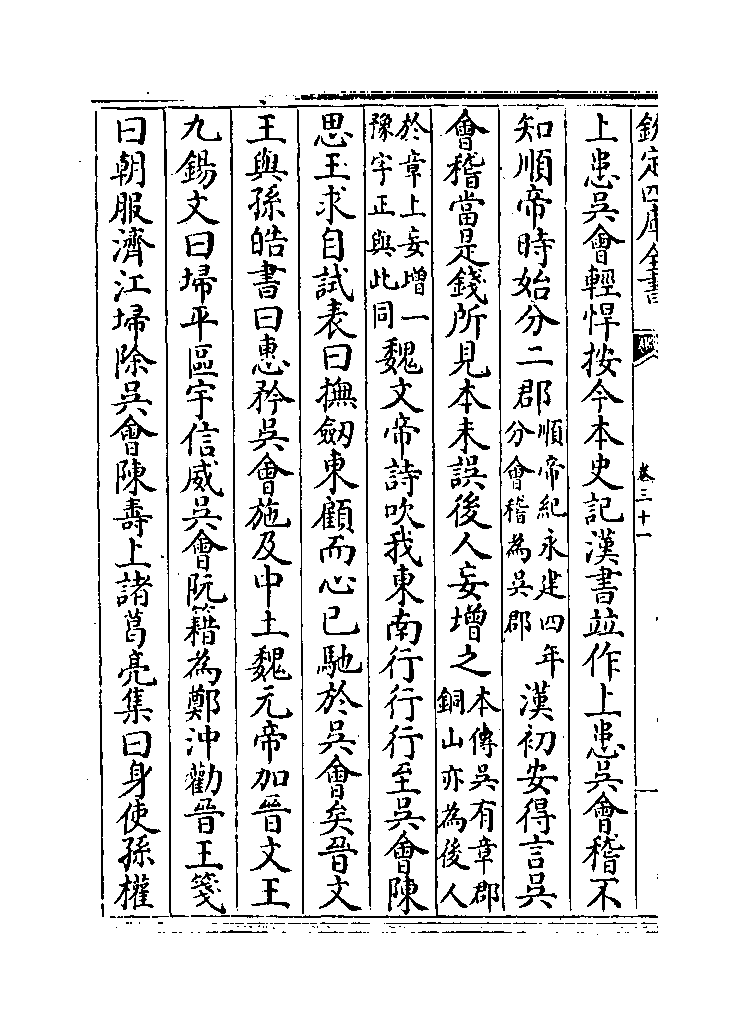 欽定四庫全書
卷三十一
上患吳會輕悍按今本史記漢書竝作上患吳會稽不
知順帝時始分二郡順帝紀永建四年分會稽為吳郡漢初安得言吳
會稽當是錢所見本未誤後人妄增之本傳吳有章郡銅山亦為後人
於章上妄增一豫字正與此同魏文帝詩吹我東南行行行至吳會陳
思王求自試表曰撫劒東顧而心已馳於吳會矣晉文
王與孫皓書曰惠矜吳會施及中土魏元帝加晉文王
九錫文曰埽平區宇信威吳會阮籍為鄭沖勸晉王箋
曰朝服濟江埽除吳會陳壽上諸葛亮集曰身使孫權